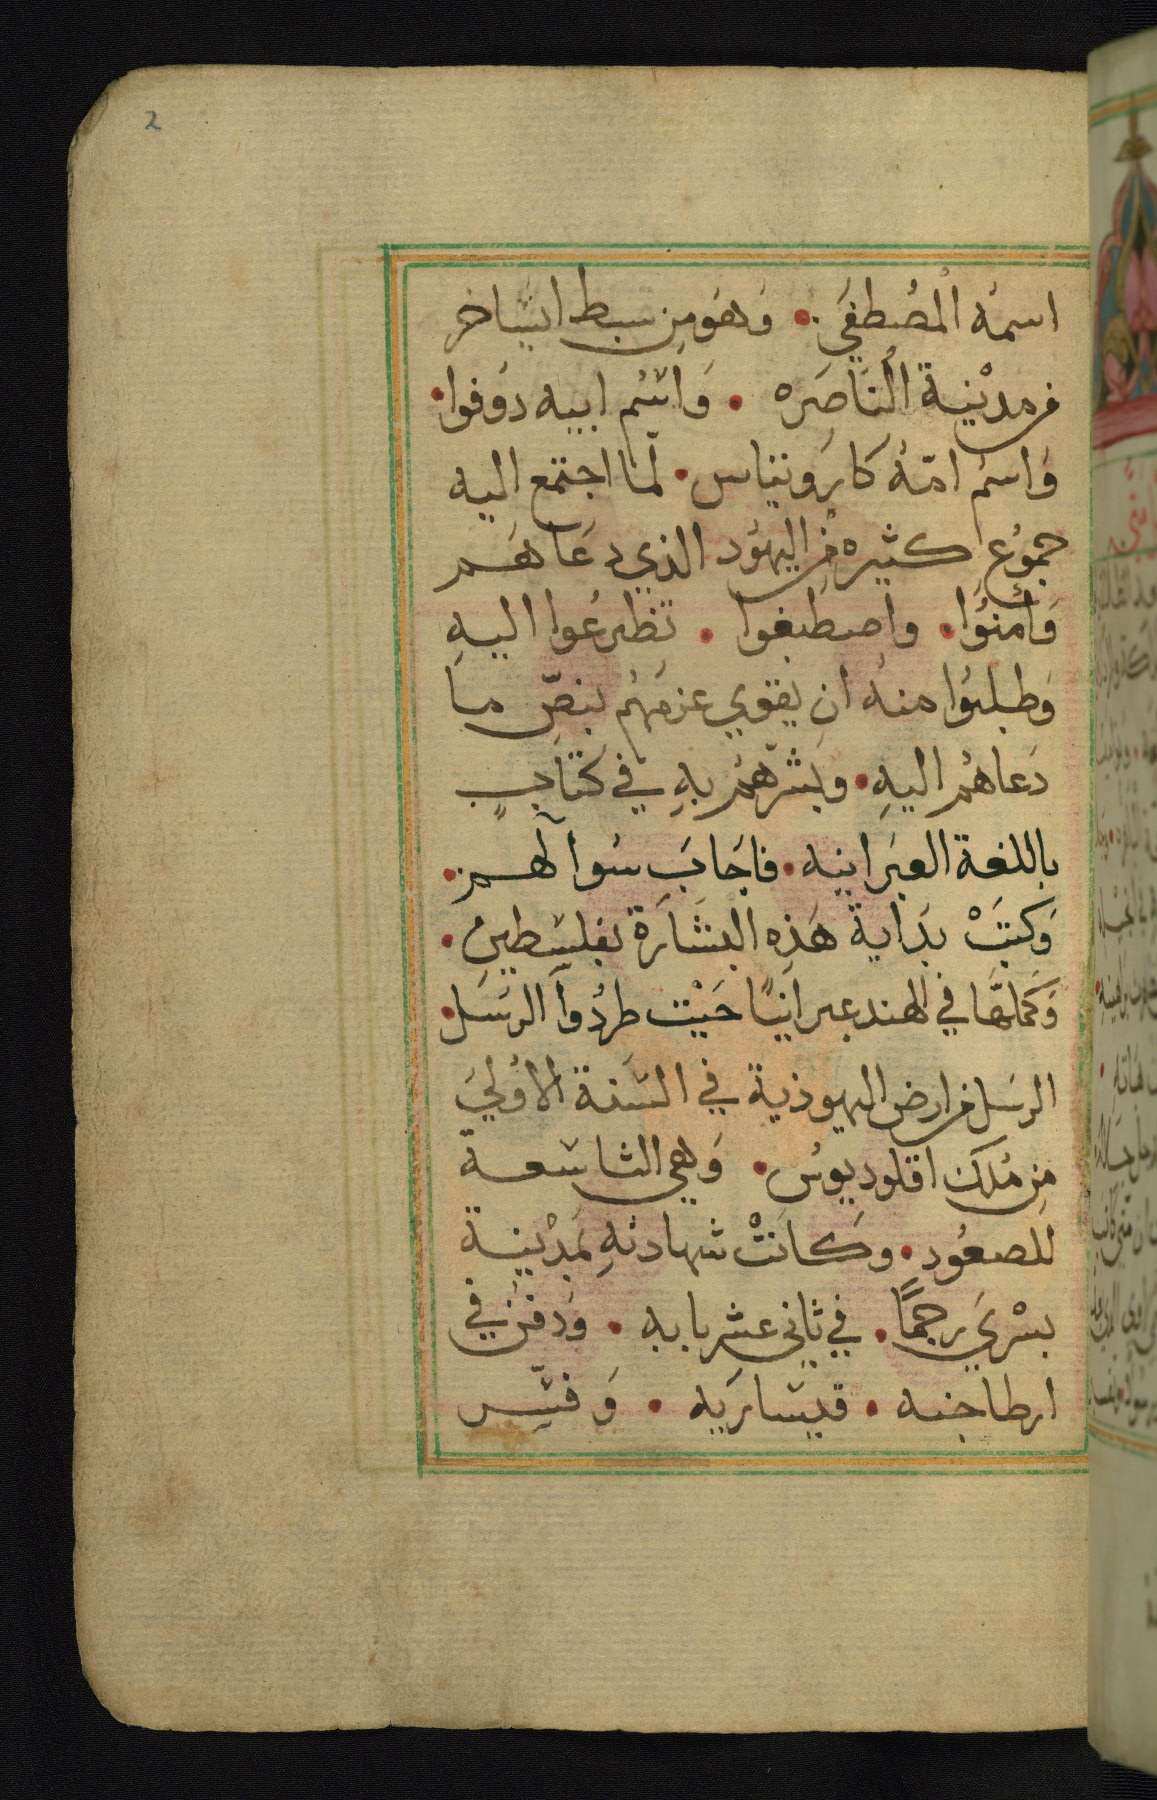 2
اسمُه المُصْطفَي • وَهوَ مِن سبط ايسَاخر
من مدْينة النَاصَره • وَاسْم ابيه دوُفوا •
وَاسمُ امّهُ كارَوتياس • لَمّا اجتمع اليه
جموُع كثيره مِن اليهوُد الذي دعَاهَم
وَأمنوُا • واصطبغوا • تظرعُوا اليهِ
وَطلبوُا منهُ ان يقوي عزمَهُم بنصّ ما
دَعاهُم اليهِ • وبَشّرهُم بهِ في كتابٍ
باللغة العبَرانيه • فاجَابَ سُوآلهم •
وَكَتبَتْ بدَايةَ هَذِه البشَارَة بفلسطين •
وَكملهَّا في الهند عبرانيًا حَيْت طردُوآ الرسَل •
الرسَل من ارض اليهوذية في السَنة الاوُليَ
مِن مُلك اقلوديوُس • وَهي التاسَعة
للصعُود • وكانَتْ شهادتهِ بمَدْينة
بسْريَ رجمًا • في ثاني عشر بابه • وَدفن في
ارطاجنه • قيسَاريه • وَفسّر